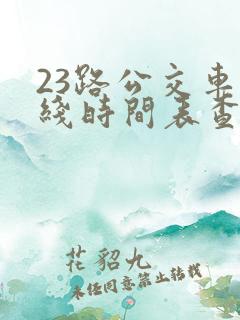 23路公交車
綫時間表查
花貂九
未经同意禁止转载